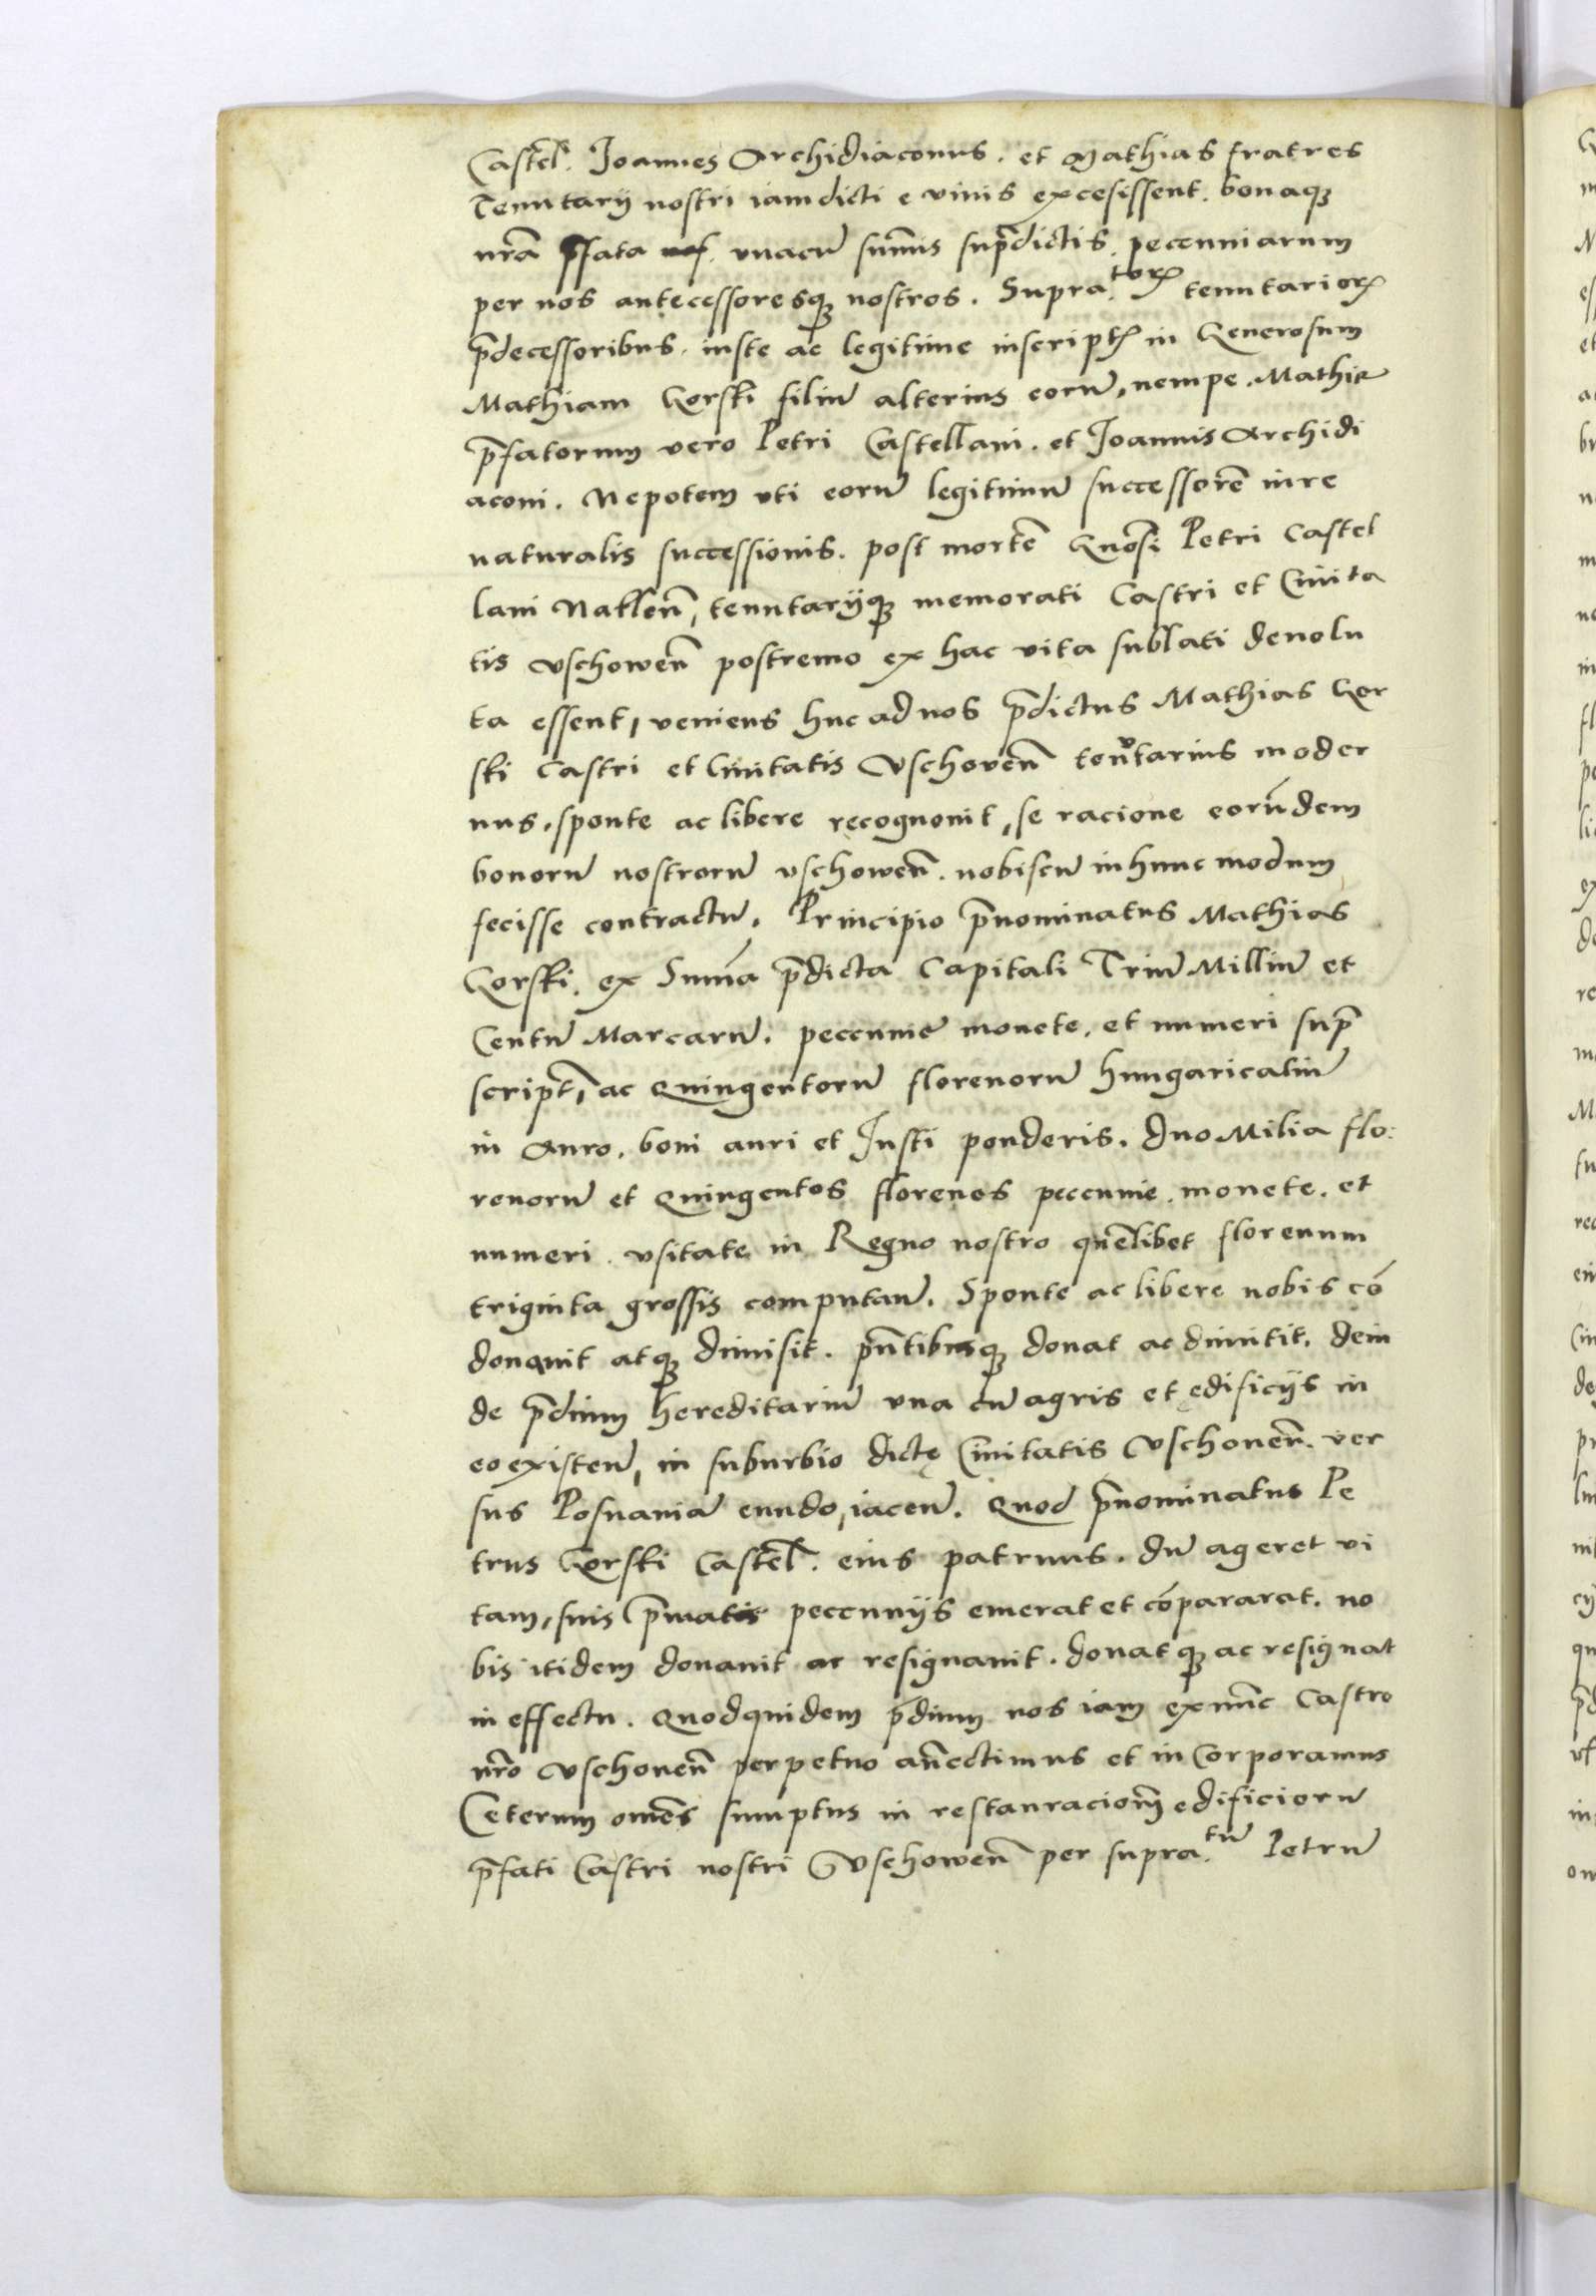 Castel̃. Joannes Archidiaconus. et Mathias fratres
Tenutarij nostri iamdicti e viuis excesissent. bonaqꝫ
nr̃a p̃fata unacũ sum̃is sup̃dictis. peccuniarum
per nos antecessoresqꝫ nostros. Supra.toꝝ tenutarioꝝ
p̃decessoribus. iuste ac legitime inscript̃ in Generosum
Mathiam Gorski filiũ alterius eorũ, nempe. Mathie
p̃fatorum vero Petri Castellani. et Joannis Archidi
aconi. Nepotem vti eorũ legitimũ successorẽ iure
naturalis successionis. post mortẽ Gn̄osi Petri Castel
lani Naklen̄, tenutarijqꝫ memorati Castri et Ciuita
tis Vschowen̄ postremo ex hac vita sublati deuolu
ta essent, veniens huc ad nos p̃dictus Mathias Gor
ski Castri et Ciuitatis Vschouen̄ tenutarius moder
nus, sponte ac libere recognouit, se racione eorũdem
bonorũ nostrorũ Vschowen̄. nobiscũ in hunc modum
fecisse contractũ. Principio p̃nominatus Mathias
Gorski. ex Sum̃a p̃dicta Capitali Triũ Milliũ et
Centũ Marcarũ. peccunie monete. et numeri sup̃
script̃, ac Quingentorũ florenorũ hungaricaliũ
in Auro. boni auri et Justi ponderis. Duo Milia flo:
renorũ et Quingentos florenos peccunie. monete. et
numeri. vsitate in Regno nostro quẽlibet florenum
triginta grossis computan̄. Sponte ac libere nobis cõ
donauit atqꝫ dimisit. pñtibusqꝫ donat ac dimitit. dein
de p̃dium hereditariũ vna cũ agris et ędificijs in
eo existen̄, in suburbio dictę Ciuitatis Vschouen̄. ver
sus Posnaniã eundo, iacen̄. Quod p̃nominatus Pe
trus Gorski Castel̃. eius patruus. dũ ageret vi
tam, suis p̃uatis peccunijs emerat et cõpararat. no
bis itidem donauit ac resignauit. donatqꝫ ac resignat
in effectu. Quodquidem p̃dium nos iam ex nũc Castro
nr̃o Vschouen̄ perpetuo añectimus et inCorporamus
Ceterum om̃es sumptus in restauracion̄ edificiorũ
p̃fati Castri nostri Vschowen̄ per supra.tũ Petrũ